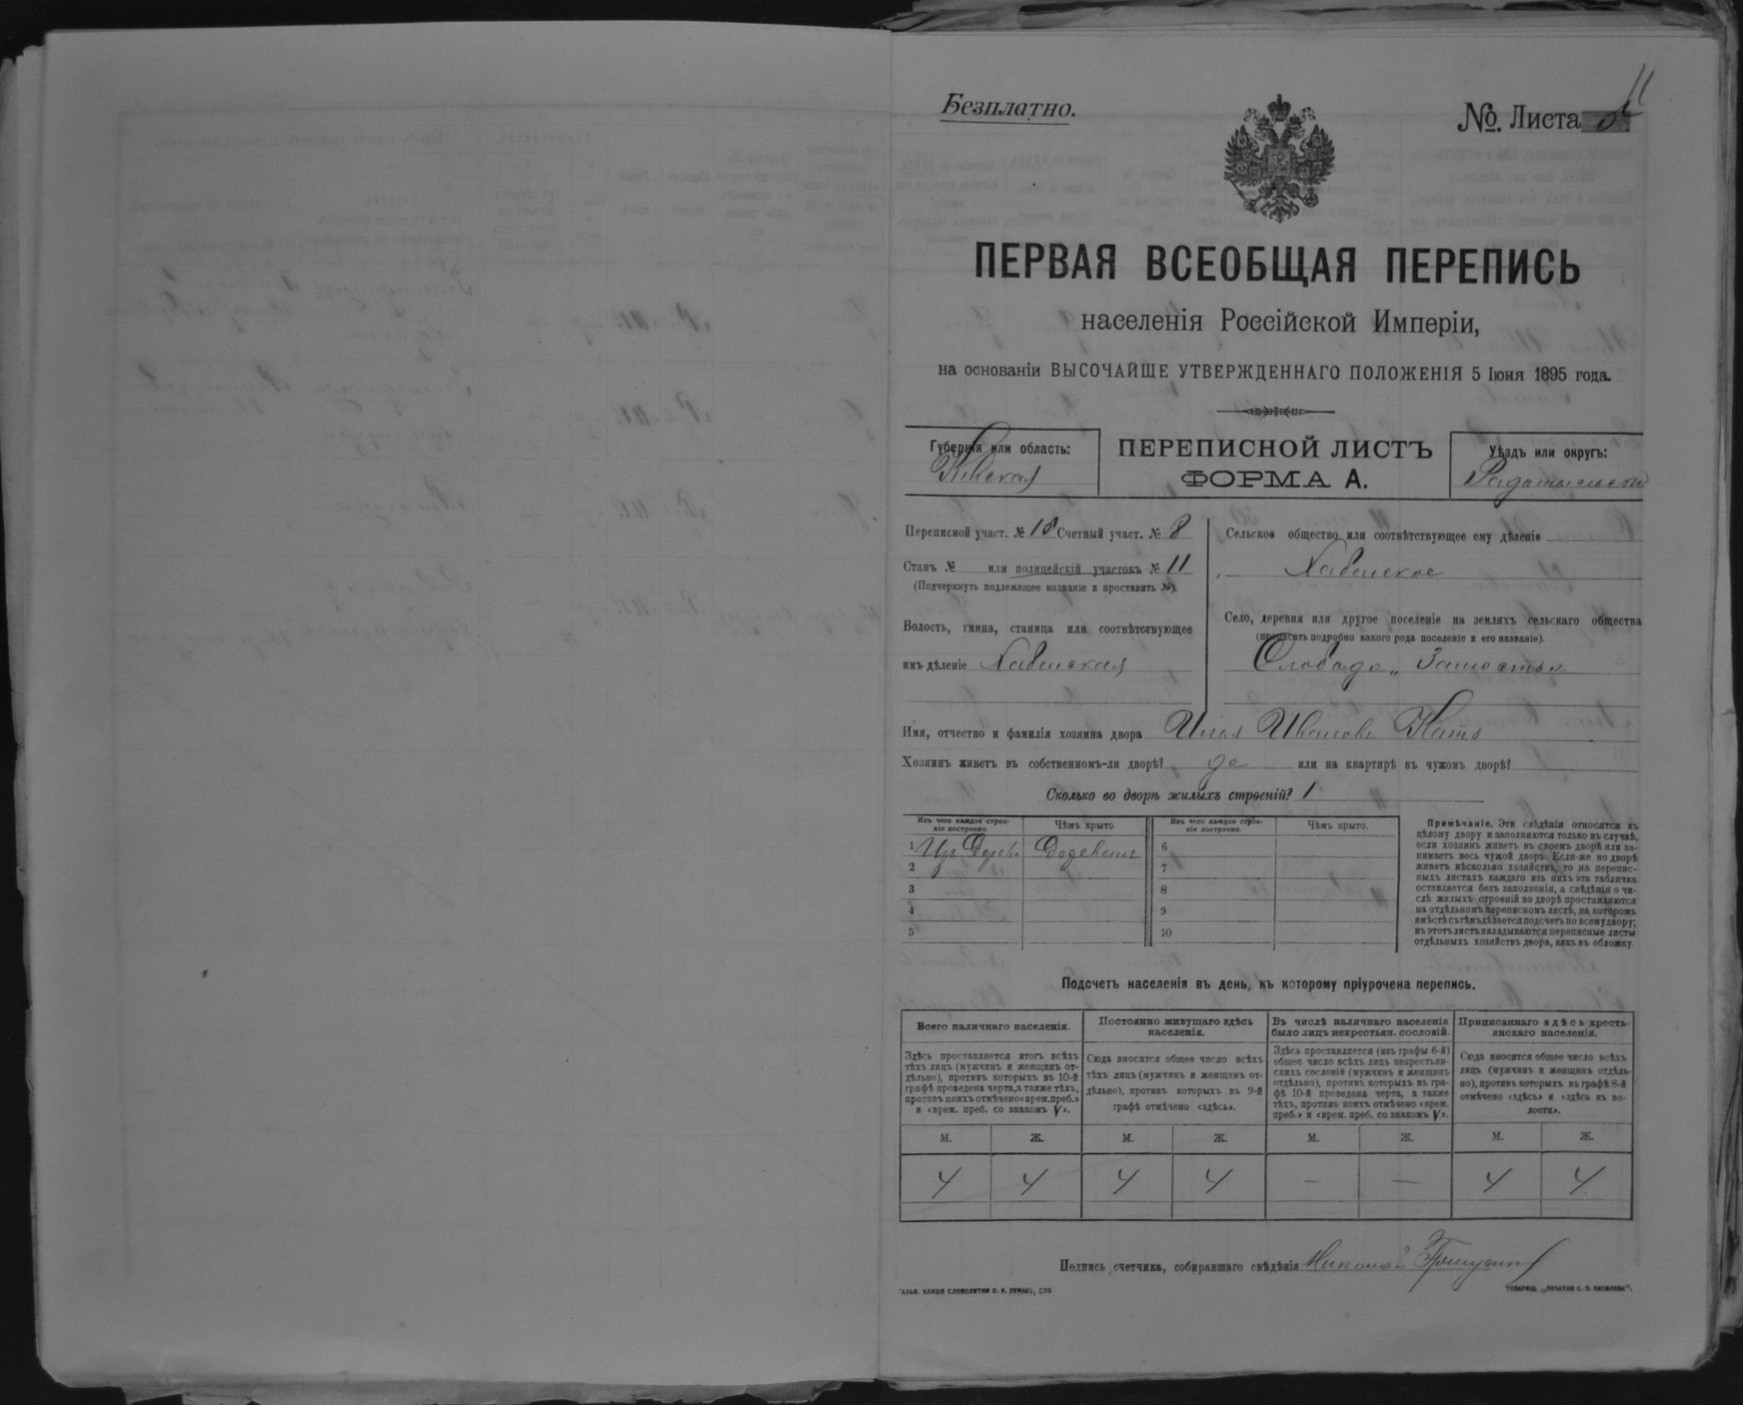 Безплатно.
№. Листа
ПЕРВАЯ ВСЕОБЩАЯ ПЕРЕПИСЬ
населенія Россійской Имперіи,
на основаніи ВЫСОЧАЙШЕ УТВЕРЖДЕННАГО ПОЛОЖЕНІЯ 5 Іюня 1895 года.
Губернія или область:
Кіевская
ПЕРЕПИСНОЙ ЛИСТЪ
ФОРМА А.
Уѣздъ или округъ:
Радомысльскій
Переписной участ. № 18 Счетный участ. № 8
Станъ № или полицейскій участокъ № 11
(Подчеркнуть подлежащее названіе и проставить №)
Волость, гмина, станица или соотвѣтствующее
имъ дѣленіе Хабенская
Сельское общество или соотвѣтствующее ему дѣленіе
Хабенское
Село, деревня или другое поселеніе на земляхъ сельскаго общества
(прописать подробно какого рода поселеніе и его названіе).
Слобода „Замостье
Имя, отчество и фамилія хозяина двора Илья Ивановъ
Хозяинъ живетъ въ собственномъ-ли дворѣ? да или на квартирѣ въ чужомъ дворѣ?
Сколько во дворѣ жилыхъ строеній? 1
Изъ чего каждое строе-
ніе построено.
Чѣмъ крыто
Изъ чего каждое строе-
ніе построено.
Чѣмъ крыто.
1 Изъ Дерев. Деревомъ 6
2 7
3 8
4 9
5 10
Примѣчаніе. Эти свѣдѣнія относятся къ
цѣлому двору и заполняются только въ случаѣ,
если хозяинъ живетъ въ своемъ дворѣ или за-
нимаетъ весь чужой дворъ. Если-же во дворѣ
живетъ нѣсколько хозяйствъ, то на перепис-
ныхъ листахъ каждаго изъ нихъ эта табличка
оставляется безъ заполненія, а свѣдѣнія о чи-
слѣ жилыхъ строеній во дворѣ проставляются
на отдѣльномъ переписномъ листѣ, на которомъ
вмѣстѣ съ тѣмъ дѣлается подсчетъ по всему двору;
въ этотъ листъ вкладываются переписные листы
отдѣльныхъ хозяйствъ двора, какъ въ обложку.
Подсчетъ населенія въ день, къ которому пріурочена перепись.
Всего наличнаго населенія.
Здѣсь проставляется итогъ всѣхъ
тѣхъ лицъ (мужчинъ и женщинъ от-
дѣльно), противъ которыхъ въ 10-й
графѣ проведена черта, а также тѣхъ,
противъ коихъ отмѣчено «врем. преб.»
и «врем. преб. со знакомъ V».
Постоянно живущаго здѣсь
населенія.
Сюда вносится общее число всѣхъ
тѣхъ лицъ (мужчинъ и женщинъ от-
дѣльно), противъ которыхъ въ 9-й
графѣ отмѣчено «здѣсь».
Въ числѣ наличнаго населенія
было лицъ некрестьян. сословій.
Здѣсь проставляется (изъ графы 6-й)
общее число всѣхъ лицъ некрестьян-
скихъ сословій (мужчинъ и женщинъ
отдѣльно), противъ которыхъ въ гра-
фѣ 10-й проведена черта, а также
тѣхъ, противъ коихъ отмѣчено «врем.
преб.» и «врем. преб. со знакомъ V».
Приписаннаго здѣсь кресть-
янскаго населенія.
Сюда вносится общее число всѣхъ
лицъ (мужчинъ и женщинъ отдѣль-
но), противъ которыхъ въ графѣ 8-й
отмѣчено «здѣсь» и «здѣсь въ во-
лости».
М. Ж. М. Ж. М. Ж. М. Ж.
4 4 4 4 — — 4 4
Подпись счетчика, собиравшаго свѣдѣнія Николай